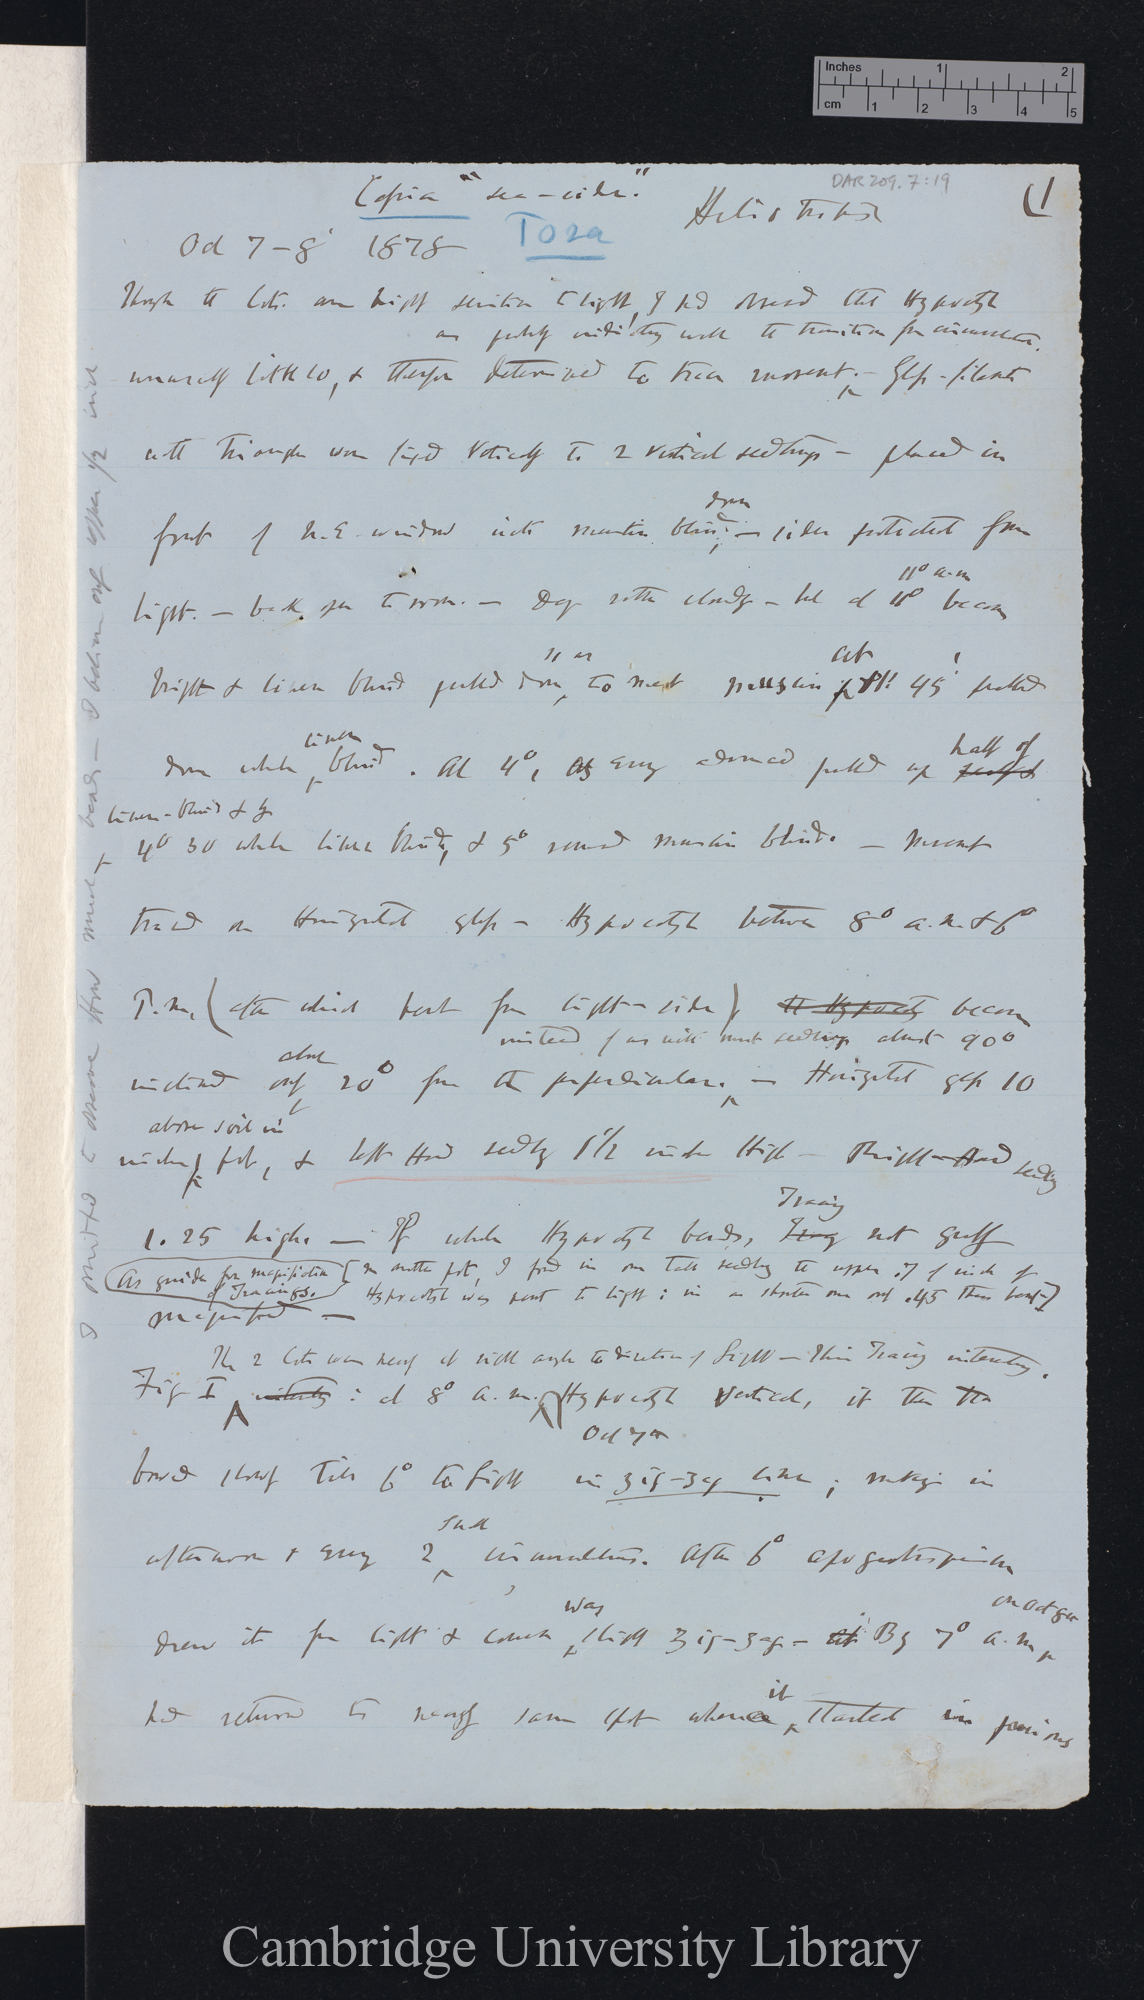 Inches 1 2
cm 1 2 3 4 5
DAR 209.7:19
(1
Cassia "sea-side."
Heliotropism
Oct 7-8 1878
Tora
Though the Cots. are highly sensitive to light, I had observed that the Hypocotyl
as probably indicating well the transition from circumnutation.
unusually little so, & therefore determined to trace movement. — Glass-filaments
with triangles were fixed vertically to 2 vertical seedlings — placed in
down
front of N.E. window with muslin blind; — sides protected from
11° a.m
light. — back open to room. — Day rather cloudy — but at 11° became
bright & linen blind pulled down, to next at 45' pulled
linen
down white blind. At 4°, as evening advanced pulled up half of
linen-blind & by
4° 30 whole linen blind, & 5° removed muslin blind. — movement
traced on Horizontal glass — Hypocotyl between 8° a.m. & 6°
P.m. (after which bent from light-side), the Hypocotyl became
instead of as with most seedlings almost 90°
about
inclined only 20° from the perpendicular. — Horizontal glass 10
above soil in
inches pot, & left Hand seedling 1 1/2 inches High — Right-Hand seedling
Tracing
1.25 high. — If whole Hypocotyl bends, Tracing not greatly
As guide for magnification of Tracings. [In another pot, I find in one tall seedling the upper .7 of inch of
Hypocotyl was bent to light: in a shorter one only .45 thus bent —]
magnified —
The 2 Cots were nearly at right angle to direction of Light — This Tracing interesting.
Fig I : at 8° a.m. Hypocotyl vertical, it then
Oct 7th
bowed slowly till 6° to light in zig-zag line; making in
small
afternoon & evening 2 circumnutations. After 6° apogeotropism
was on Oct 8th
drew it from light & course slightly zig-zag — By 7° a.m.
it
had returned to nearly same spot whence started in previous
I omitted to observe how much bends — I believe only upper 1/2 inch
Cambridge University Library